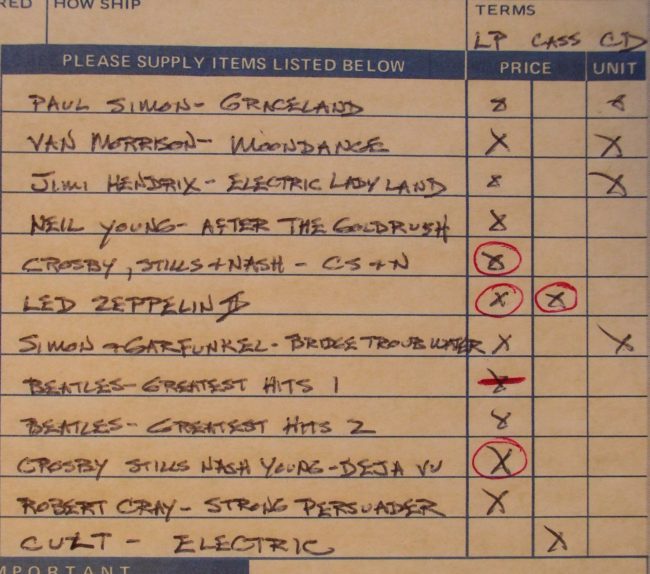 RED HOW SHIP TERMS
LP CASS CD
PLEASE SUPPLY ITEMS LISTED BELOW PRICE UNIT
PAUL SIMON- GRACELAND X X
VAN MORRISON- MOONDANCE X X
JIMI HENDRIX - ELECTRIC LADY LAND X X
NEIL YOUNG- AFTER THE GOLDRUSH X
CROSBY, STILLS + NASH - CS + N X
LED ZEPPELIN II X X
SIMON + GARFUNKEL - BRIDGE TROUB WATER X X
BEATLES- GREATEST HITS 1 X
BEATLES- GREATEST HITS 2 X
CROSBY STILLS NASH YOUNG-DEJA VU X
ROBERT CRAY- STRONG PERSUADER X
CULT - ELECTRIC X
MPORTANT